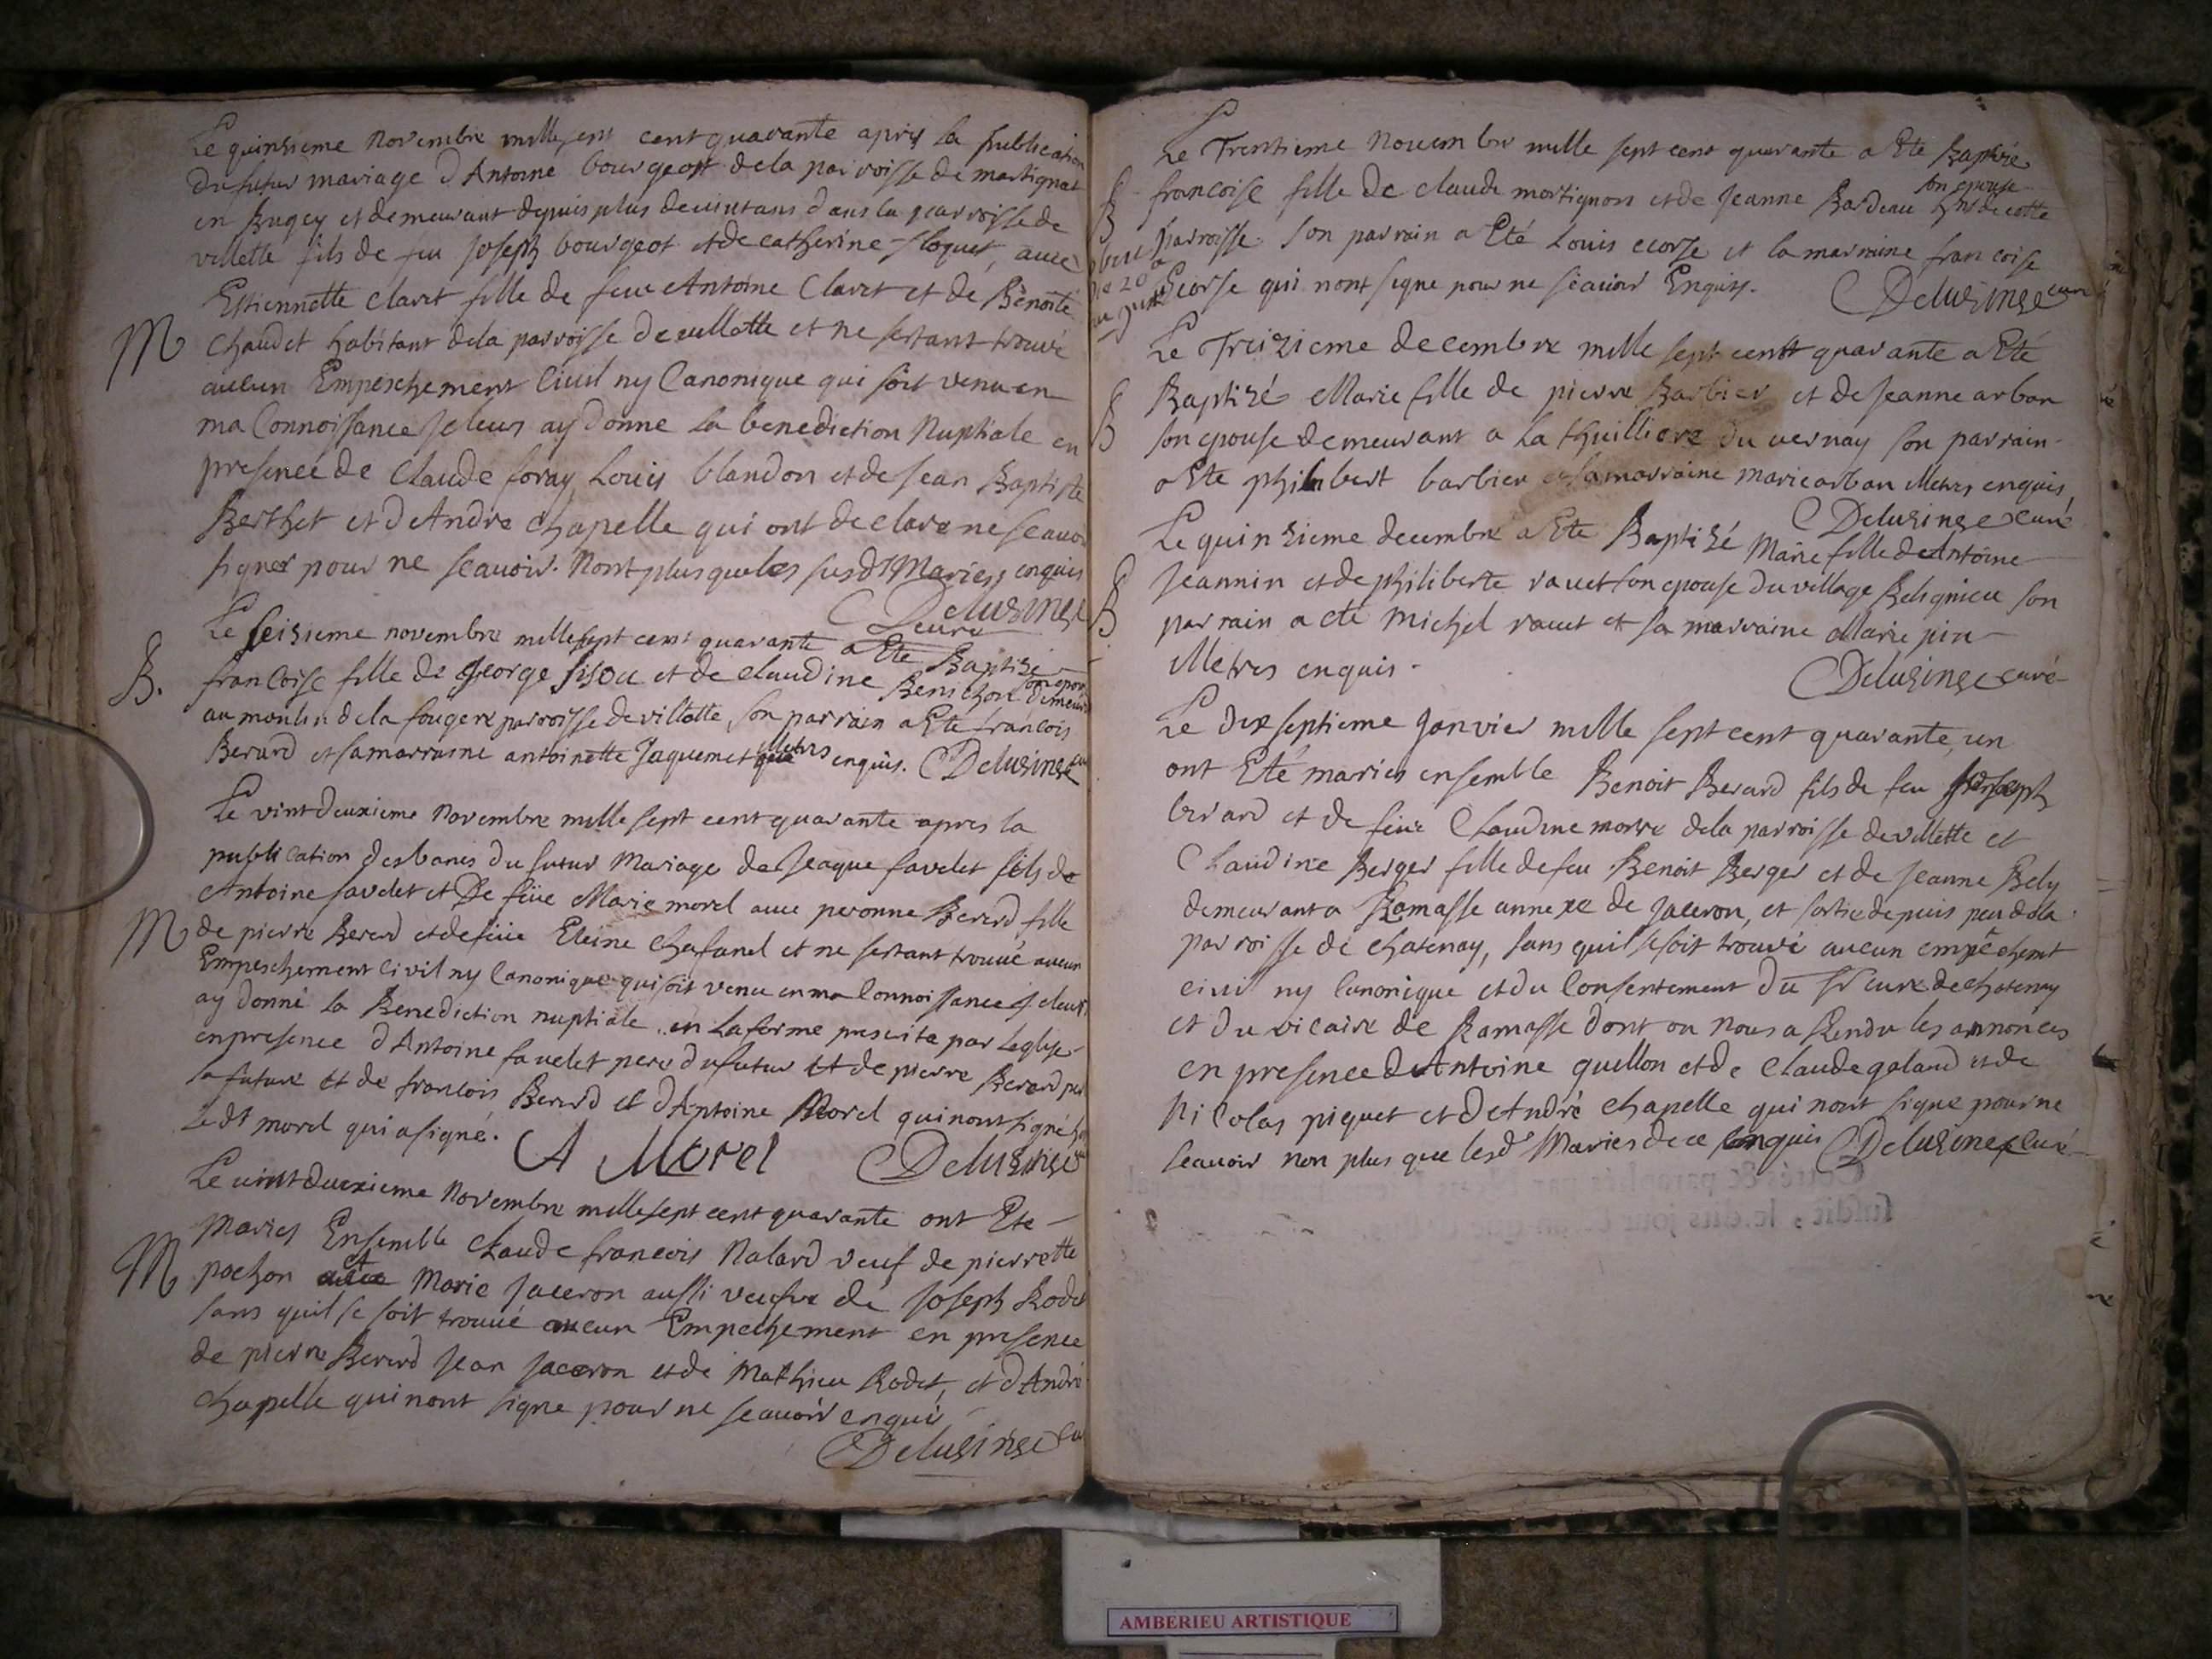 Le quinsieme Novembre mille sept cent quarante apres la publication
du futur mariage d Antoine bourgeot dela parroisse de martignat
en Bugey et demeurant depuis plus de vint ans dans la parroisse de
villette fils de feu Joseph bourgeot et de catherine floquet, avec
Estiennette Claret fille de feu Antoine Claret et de Benoite
M
Chaudet habitant dela parroisse de villette et ne sestant trouvé
aucun Empeschement Civil ny Canonique qui soit venu en
ma Connoissance Je leur ay donne la benediction Nuptiale en
presence de Claude foray Louis blandon et de Jean Baptiste
Berthet et d Andre Chapelle qui ont declare ne scavoir
signer pour ne scavoir. Nont plus que les susdt Maries enquis
Delusinge
curé
Le seisieme novembre mille sept cent quarante a Ete Baptisé
B.
francoise fille de George et de claudine son epouse demeurant
au moulin dela fougere parroisse de villette son parrain a Ete francois
Berard et sa marraine antoinette Jaquemet enquis. Delusinge
Le vint deuxieme Novembre mille sept cent quarante apres la
publication des bancs du futur Mariage de Jeaque favelet fils de
Antoine favelet et De feüe Marie morel avec peronne Berard fille
M
de pierre Berard et de feüe Eleine Chafanel et ne sestant trouvé aucun
Empeschement Civil ny Canonique qui soit venu en ma Connoissance je leur
ay donné la Benediction nuptiale en la forme prescrite par Leglise
en presence d Antoine favelet pere du futur Et de pierre Berard pere
la future et de francois Berard et d Antoine Morel qui nont signé
Ledt morel qui a signé. A Morel Delusinge
Le vint deuxieme Novembre mille sept cent quarante ont Ete
Maries Ensemble Claude francois Nalard veuf de pierrette
M
pochon et Marie Jaceron aussi veufve de Joseph Rodet
sans quil se soit trouvé aucun Empechement en presence
de pierre Berard Jean Jaceron et de Mathieu Rodet, et d André
Chapelle qui nont signe pour ne scavoir enquis
Delusinge
Le Trentieme Novembre mille sept cent quarante a Ete Baptisée
son epouse
B
francoise fille de claude martignon et de Jeanne Bardeau de cette
parroisse son parrain a Eté Louis ecorse et la marraine francoise
Ecorse qui nont signe pour ne scavoir Enquis. Delusinge curé
Le Treizieme decembre mille sept cent quarante a Eté
B
Baptizé Marie fille de pierre Barbier et de Jeanne arban
son epouse demeurant a la thuilliere du vernay son parrain
a Ete philibert barbier et sa marraine marie arban enquis
Delusinge curé
Le quinzieme decembre a Ete Baptizé Marie fille de Antoine
B
Jeannin et de philiberte ravet son epouse du village Belignieu son
parrain a ete Michel ravet et sa marraine Marie pin
enquis.
Delusinge curé
Le dix septieme Janvier mille sept cent quarante un
ont Eté mariés ensemble Benoit Berard fils de feu Joseph
berard et de feüe Claudine dela parroisse de villette et
Claudine Berger fille de feu Benoit Berger et de Jeanne Bely
demeurant a Ramasse annexe de Jaceron, et sortie depuis peu dela
parroisse de Chatenay, sans quil se soit trouvé aucun empechemt
civil ny Canonique et du Consentement du sr curé de chatenay
et du vicaire de Ramasse dont on nous a Rendu les annonces
en presence d Antoine guillon et de Claude galand et de
Nicolas piquet et d André Chapelle qui nont signe pour ne
scavoir non plus que lesd Maries de ce enquis Delusinge curé
AMBERIEU ARTISTIQUE